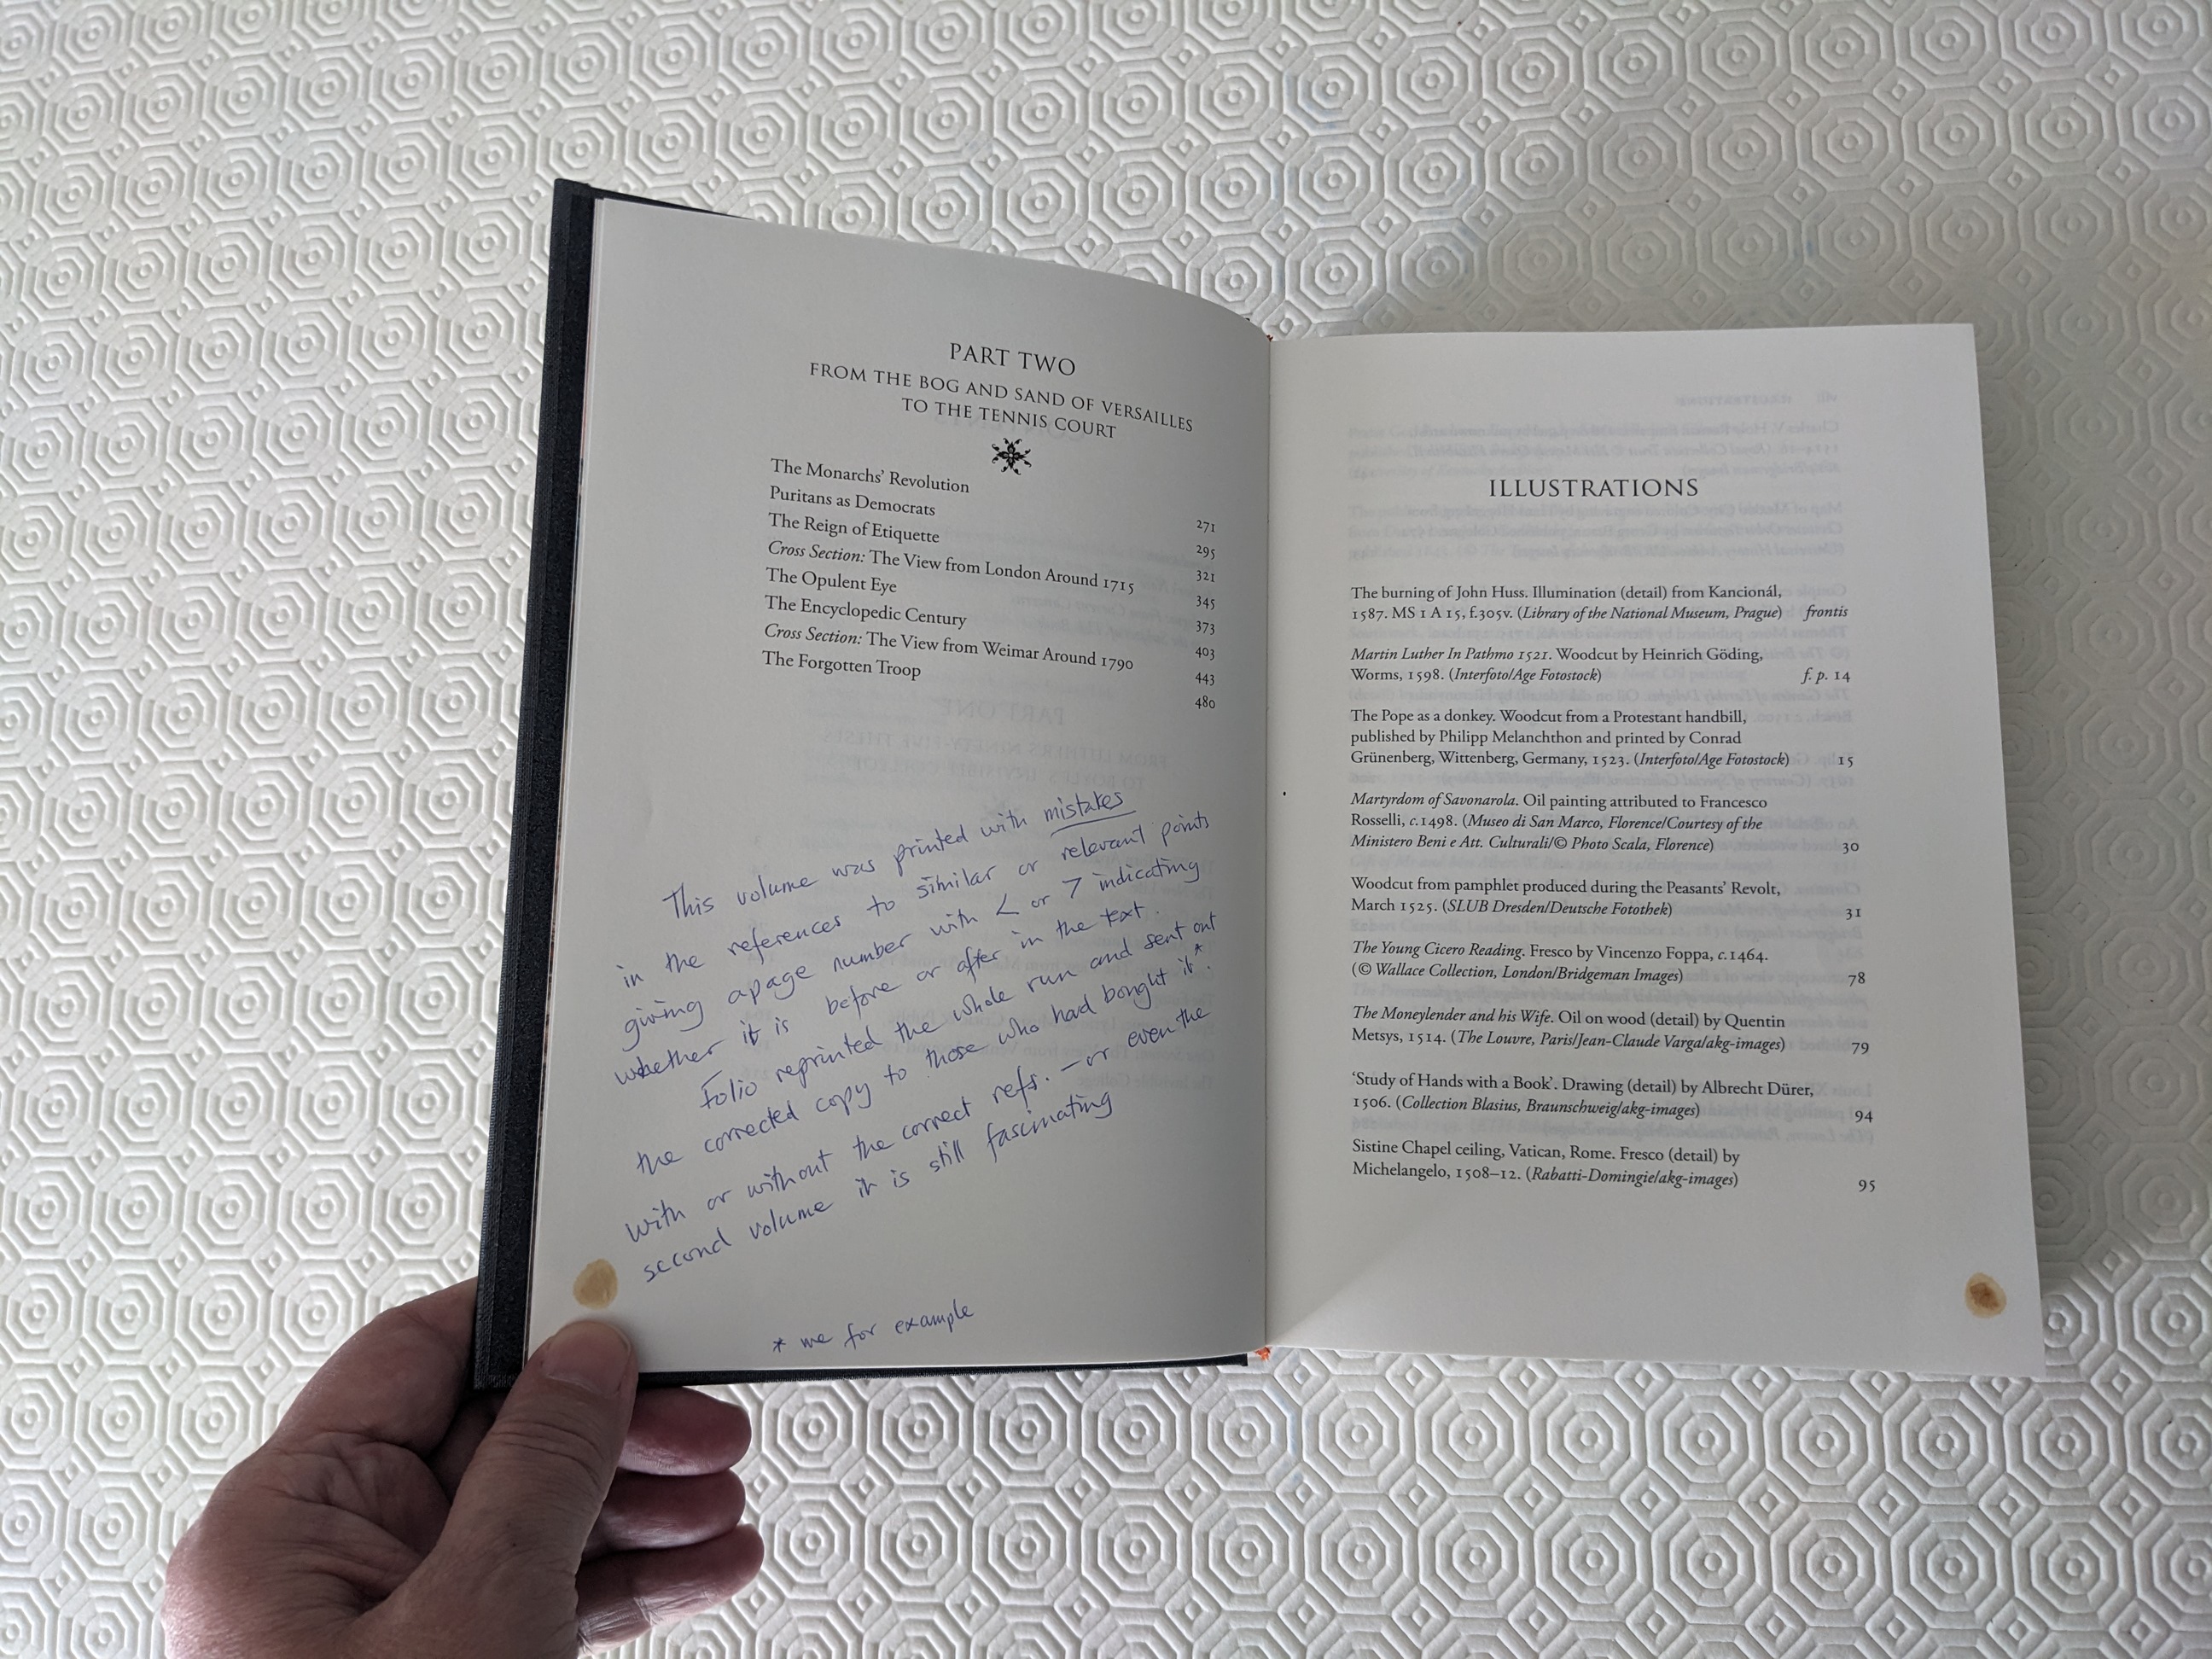 PART TWO
FROM THE BOG AND SAND OF VERSAILLES
TO THE TENNIS COURT
The Monarchs' Revolution 271
Puritans as Democrats 295
The Reign of Etiquette 321
Cross Section: The View from London Around 1715 345
The Opulent Eye 373
The Encyclopedic Century 403
Cross Section: The View from Weimar Around 1790 443
The Forgotten Troop 480
This volume was printed with mistakes
in the references to similar or relevant points
giving a page number with < or > indicating
whether it is before or after in the text.
Folio reprinted the whole run and sent out
the corrected copy to those who had bought it*.
with or without the correct refs. – or even the
second volume it is still fascinating
* me for example
ILLUSTRATIONS
The burning of John Huss. Illumination (detail) from Kancionál,
1587. MS 1 A 15, f.305v. (Library of the National Museum, Prague) frontis
Martin Luther In Pathmo 1521. Woodcut by Heinrich Göding,
Worms, 1598. (Interfoto/Age Fotostock) f. p. 14
The Pope as a donkey. Woodcut from a Protestant handbill,
published by Philipp Melanchthon and printed by Conrad
Grünenberg, Wittenberg, Germany, 1523. (Interfoto/Age Fotostock) 15
Martyrdom of Savonarola. Oil painting attributed to Francesco
Rosselli, c.1498. (Museo di San Marco, Florence/Courtesy of the
Ministero Beni e Att. Culturali/© Photo Scala, Florence) 30
Woodcut from pamphlet produced during the Peasants' Revolt,
March 1525. (SLUB Dresden/Deutsche Fotothek) 31
The Young Cicero Reading. Fresco by Vincenzo Foppa, c.1464.
(© Wallace Collection, London/Bridgeman Images) 78
The Moneylender and his Wife. Oil on wood (detail) by Quentin
Metsys, 1514. (The Louvre, Paris/Jean-Claude Varga/akg-images) 79
'Study of Hands with a Book'. Drawing (detail) by Albrecht Dürer,
1506. (Collection Blasius, Braunschweig/akg-images) 94
Sistine Chapel ceiling, Vatican, Rome. Fresco (detail) by
Michelangelo, 1508–12. (Rabatti-Domingie/akg-images) 95